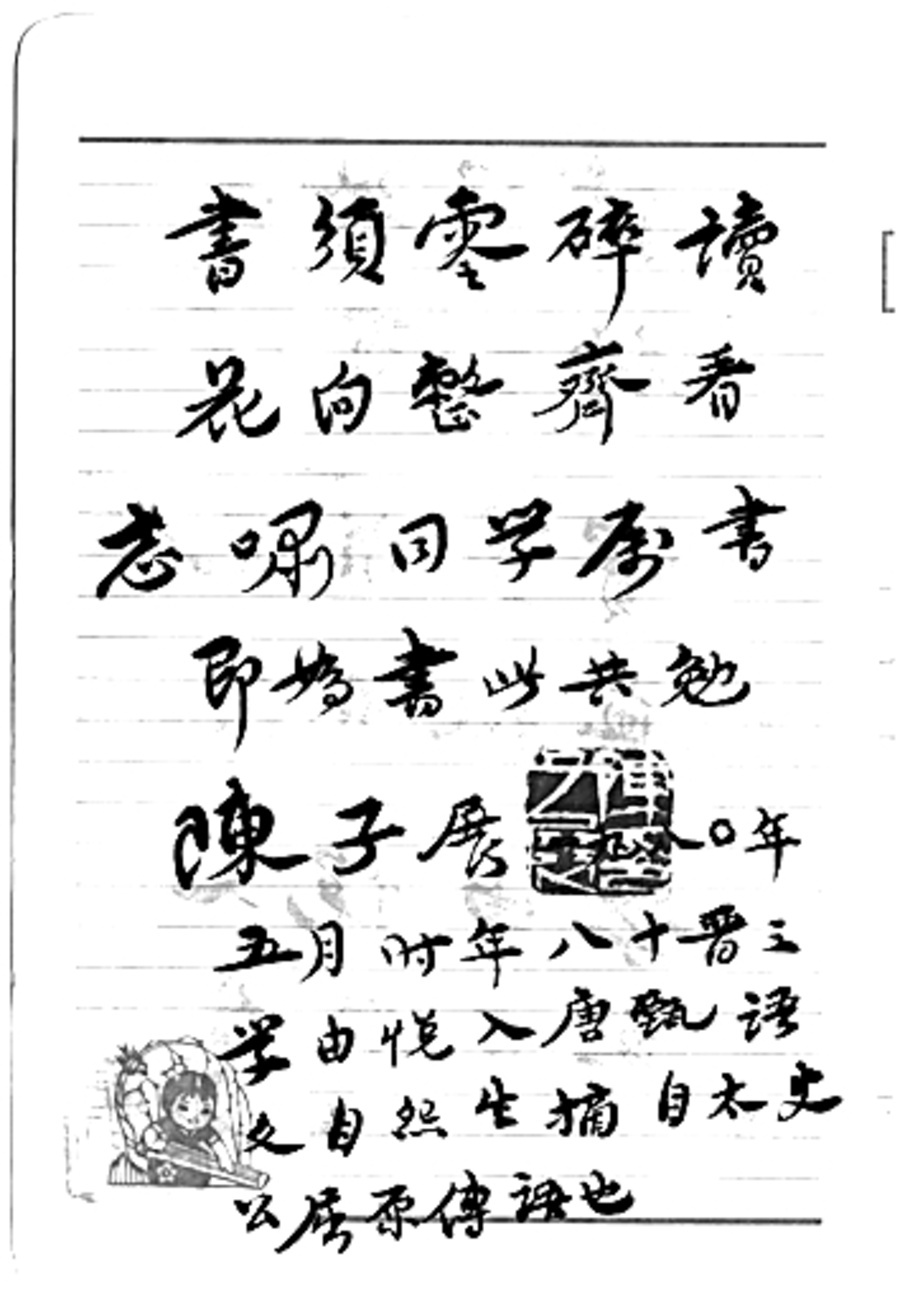 書須零碎讀
花向整齊看
志啸同学属书
即為書此共勉
陳子展 一九八〇年
五月时年八十晋三
学由悦入唐甄語
文自怨生摘自太史
公屈原傳語也